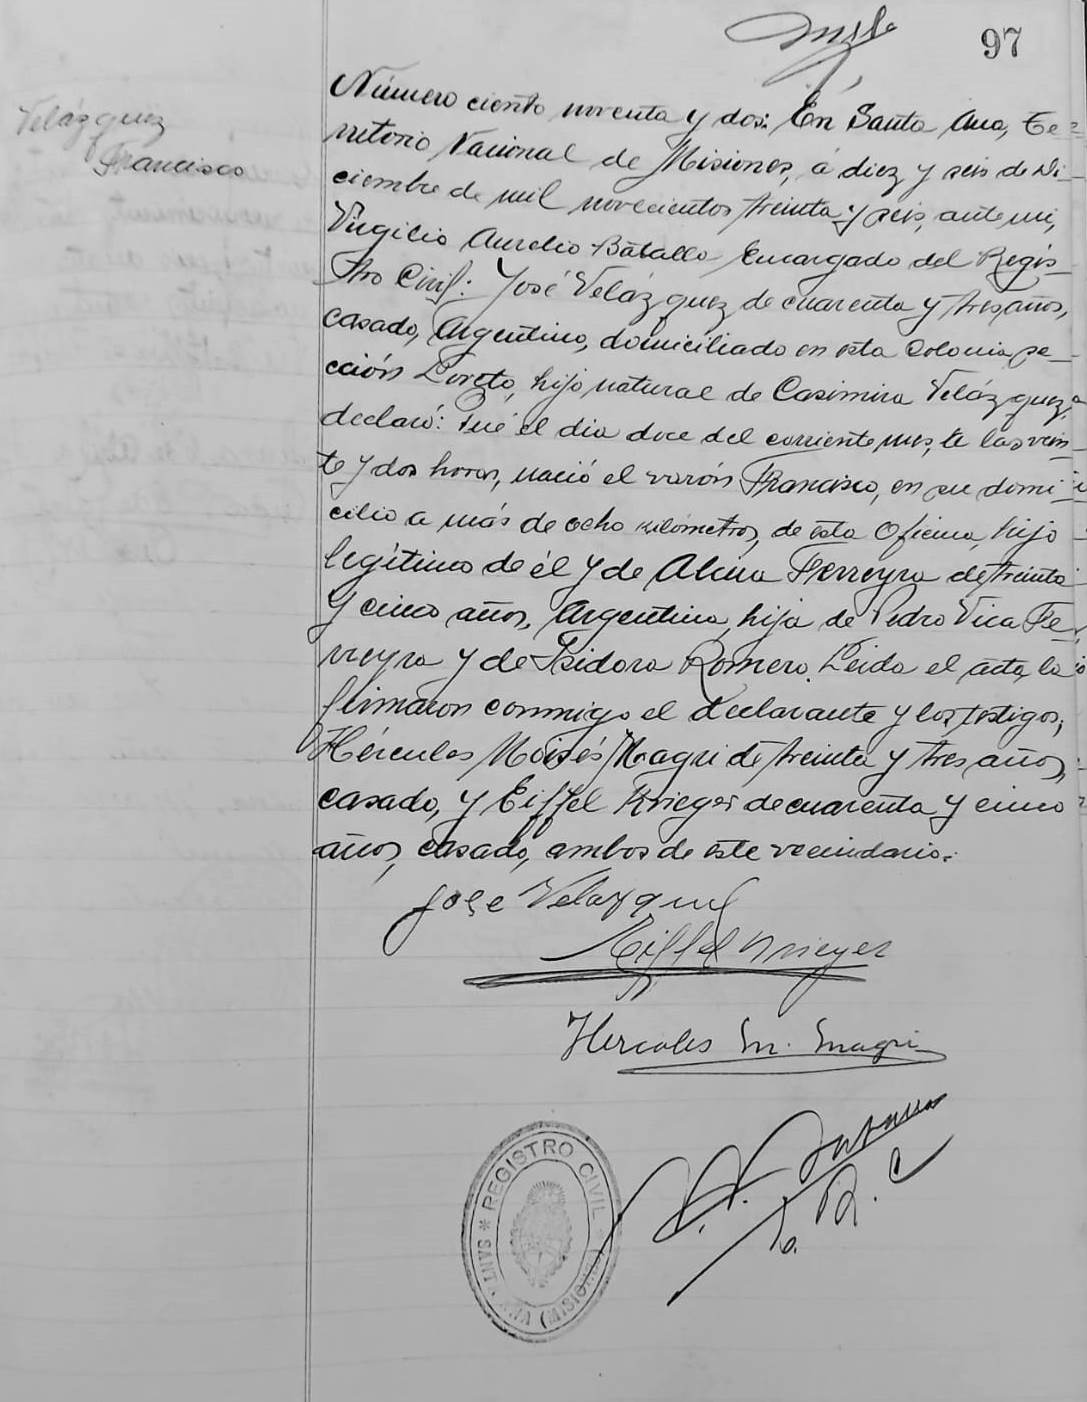 97
Velázquez
Francisco
Número ciento noventa y dos: En Santa Ana, Te-
rritorio Nacional de Misiones, á diez y seis de Di-
ciembre de mil novecientos treinta y seis, ante mi,
Virgilio Aurelio Baballo Encargado del Regis-
tro Civil: José Velázquez de cuarenta y tres años,
casado, Argentino, domiciliado en esta Colonia se-
cción Loreto, hijo natural de Casimira Velázquez,
declaró: Que el dia doce del corriente mes, a las vein-
te y dos horas, nació el varón Francisco, en su domi-
cilio a más de ocho kilómetros, de esta Oficina, hijo
legítimo de él y de Alcira Ferreyra de treinta
y cinco años, Argentina, hija de Pedro Vica Fe-
rreyra y de Isidora Romero. Leida el acta, la
firmaron conmigo el declarante y los testigos;
Hércules Moisés Magri de treinta y tres años,
casado, y Eiffel Krieger de cuarenta y cinco
años, casado, ambos de este vecindario.
Jose Velazquez
Eiffel Krieger
Hercoles M. Magri
E. R. C
REGISTRO CIVIL
SANTA ANA (MISIONES)